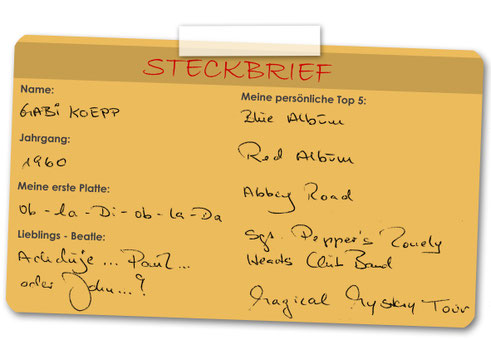 STECKBRIEF
Name:
GABi KOEPP
Jahrgang:
1960
Meine erste Platte:
Ob-la-Di-ob-la-Da
Lieblings - Beatle:
Achduje ... Paul ...
oder John...?
Meine persönliche Top 5:
Blue Album
Red Album
Abbey Road
Sgt. Pepper's Lonely
Hearts Club Band
Magical Mystery Tour